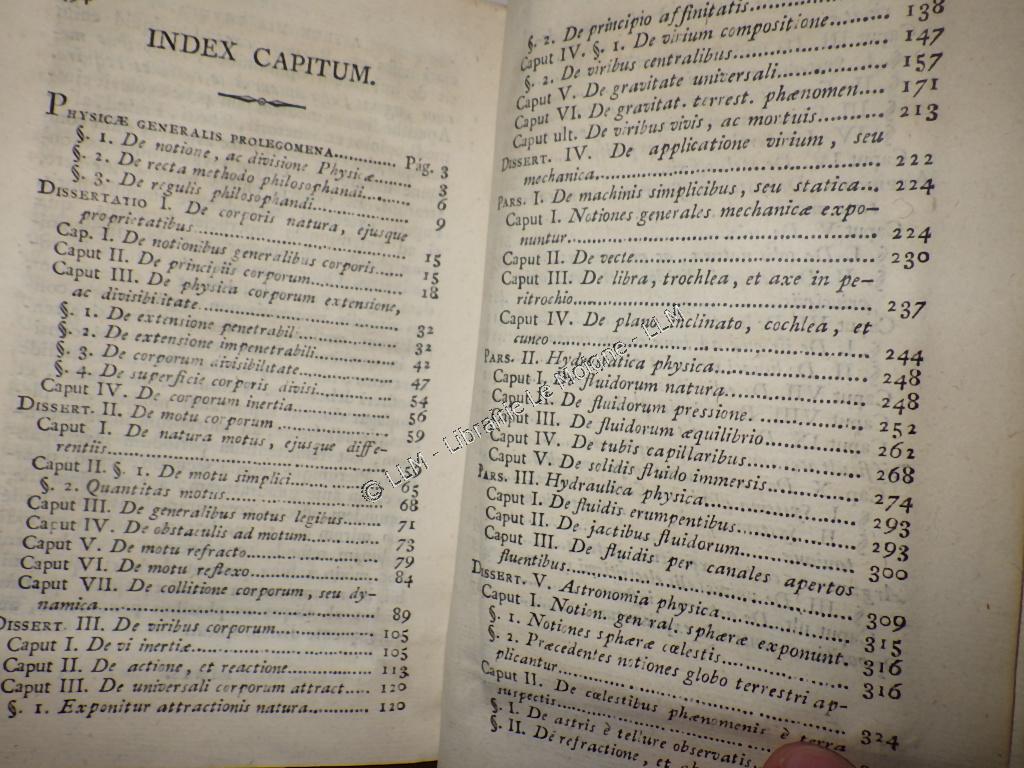 INDEX CAPITUM.
PHYSICÆ GENERALIS PROLEGOMENA............ Pag. 3
§. 1. De notione, ac divisione Physicæ....... 3
§. 2. De recta methodo philosophandi......... 6
§. 3. De regulis philosophandi................ 9
DISSERTATIO I. De corporis natura, ejusque
proprietatibus............................ 15
Cap. I. De notionibus generalibus corporis..... 15
Caput II. De principiis corporum............... 18
Caput III. De physica corporum extensione,
ac divisibilitate......................... 32
§. 1. De extensione penetrabili............... 32
§. 2. De extensione impenetrabili............. 42
§. 3. De corporum divisibilitate.............. 47
§. 4. De superficie corporis divisi........... 54
Caput IV. De corporum inertia.................. 56
DISSERT. II. De motu corporum................. 59
Caput I. De natura motus, ejusque diffe-
rentiis...................................
Caput II. §. 1. De motu simplici............... 65
§. 2. Quantitas motus......................... 68
Caput III. De generalibus motus legibus........ 71
Caput IV. De obstaculis ad motum............... 73
Caput V. De motu refracto...................... 79
Caput VI. De motu reflexo...................... 84
Caput VII. De collitione corporum, seu dy-
namica.................................... 89
DISSERT. III. De viribus corporum.............. 105
Caput I. De vi inertiæ......................... 105
Caput II. De actione, et reactione............. 113
Caput III. De universali corporum attract..... 120
§. 1. Exponitur attractionis natura.......... 120
§. 2. De principio affinitatis................
Caput IV. §. 1. De virium compositione......... 138
§. 2. De viribus centralibus.................. 147
Caput V. De gravitate universali............... 157
Caput VI. De gravitat. terrest. phænomen.... 171
Caput ult. De viribus vivis, ac mortuis....... 213
DISSERT. IV. De applicatione virium, seu
mechanica................................. 222
PARS. I. De machinis simplicibus, seu statica... 224
Caput I. Notiones generales mechanicæ expo-
nuntur.................................... 224
Caput II. De vecte............................. 230
Caput III. De libra, trochlea, et axe in pe-
ritrochio................................. 237
Caput IV. De plano inclinato, cochlea, et
cuneo..................................... 244
PARS. II. Hydrostatica physica................. 248
Caput I. De fluidorum natura................... 248
Caput II. De fluidorum pressione............... 252
Caput III. De fluidorum æquilibrio............. 262
Caput IV. De tubis capillaribus................ 268
Caput V. De solidis fluido immersis............ 274
PARS. III. Hydraulica physica.................. 293
Caput I. De fluidis erumpentibus............... 293
Caput II. De jactibus fluidorum................ 300
Caput III. De fluidis per canales apertos
fluentibus................................ 309
DISSERT. V. Astronomia physica................. 315
Caput I. Notion. general. sphæræ exponunt. 316
§. 1. Notiones sphæræ cœlestis................ 316
§. 2. Præcedentes notiones globo terrestri ap-
plicantur................................. 324
Caput II. De cœlestibus phænomenis è terra
suspectis.................................
§. I. De astris è tellure observatis.
§. II. De refractione, et
© LLM - Librairie Le Moigne - LLM